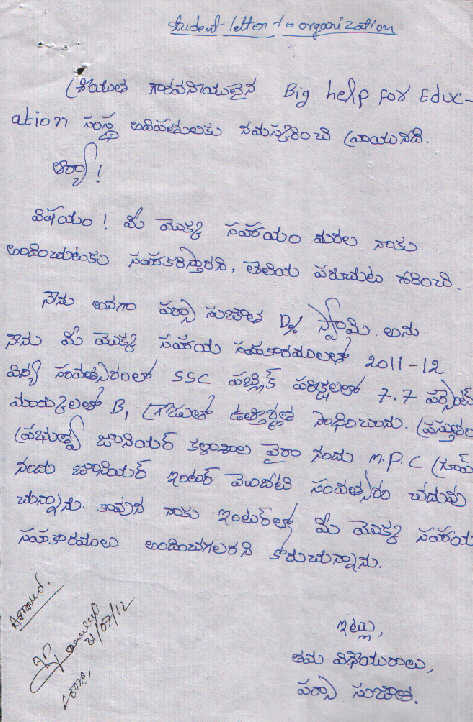 student letter to organization
శ్రీయుత గౌరవనీయులైన Big help for Educ-
ation సంస్థ అధిపతులకు నమస్కరించి వ్రాయునది.
ఆర్యా!
విషయం! మీ యొక్క సహాయం మరల నాకు
అందించుటకు సహకరిస్తారని, తెలియ పరుచుట గురించి.
నేను అనగా పర్సా సుజాత D/o స్వామి. అను
నేను మీ యొక్క సహాయ సహకారములతో 2011-12
విద్యా సంవత్సరంలో SSC పబ్లిక్ పరీక్షలలో 7.7 పర్సెంట్
మార్కులతో B, గ్రేడులో ఉత్తీర్ణత సాధించాను. ప్రస్తుతం
జూనియర్ కళాశాల వైరా నందు M.P.C గ్రూప్
నందు జూనియర్ ఇంటర్ మొదటి సంవత్సరం చదువు
చున్నాను. కావున నాకు ఇంటర్‌లో మీ యొక్క సహాయ
సహకారములు అందించగలరని కోరుచున్నాను.
ఇట్లు,
తమ విధేయురాలు,
పర్సా సుజాత.
21/07/12